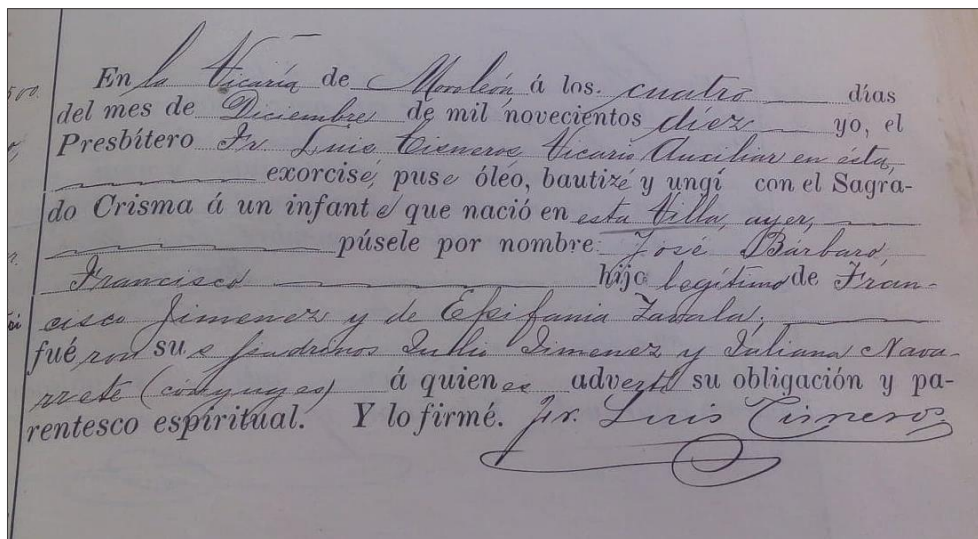 En la Vicaría de Moroleón á los cuatro días
del mes de Diciembre de mil novecientos diez yo, el
Presbítero Fr. Luis Cisneros, Vicario Auxiliar en ésta,
exorcisé, puse óleo, bautizé y ungí con el Sagra-
do Crisma á un infante que nació en esta Villa, ayer,
púsele por nombre: José Bárbaro,
Francisco hijo legítimo de Fran-
cisco Jimenez y de Epifania Zavala;
fué ron su s padrinos Julio Jimenez y Juliana Nava-
rrete (cónyuges) á quienes advertí su obligación y pa-
rentesco espíritual. Y lo firmé. Fr. Luis Cisneros